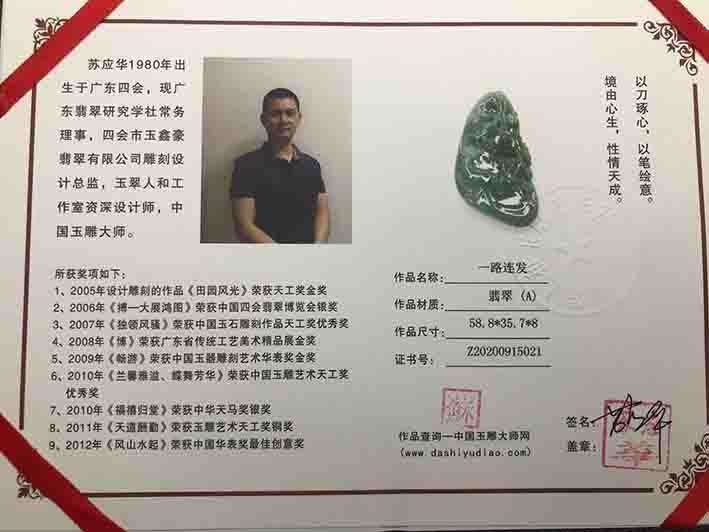 苏应华1980年出
生于广东四会，现广
东翡翠研究学社常务
理事，四会市玉鑫豪
翡翠有限公司雕刻设
计总监，玉翠人和工
作室资深设计师，中
国玉雕大师。
所获奖项如下：
1、2005年设计雕刻的作品《田园风光》荣获天工奖金奖
2、2006年《搏一大展鸿图》荣获中国四会翡翠博览会银奖
3、2007年《独领风骚》荣获中国玉石雕刻作品天工奖优秀奖
4、2008年《博》荣获广东省传统工艺美术精品展金奖
5、2009年《畅游》荣获中国玉器雕刻艺术华表奖金奖
6、2010年《兰馨雅溢、蝶舞芳华》荣获中国玉雕艺术天工奖
优秀奖
7、2010年《福禧归堂》荣获中华天马奖银奖
8、2011年《天道酬勤》荣获玉雕艺术天工奖铜奖
9、2012年《风山水起》荣获中国华表奖最佳创意奖
以刀琢心，以笔绘意。
境由心生，性情天成。
作品名称：一路连发
作品材质：翡翠（A）
作品尺寸：58.8*35.7*8
证书号：Z20200915021
作品查询—中国玉雕大师网
(www.dashiyudiao.com)
签名：
盖章：